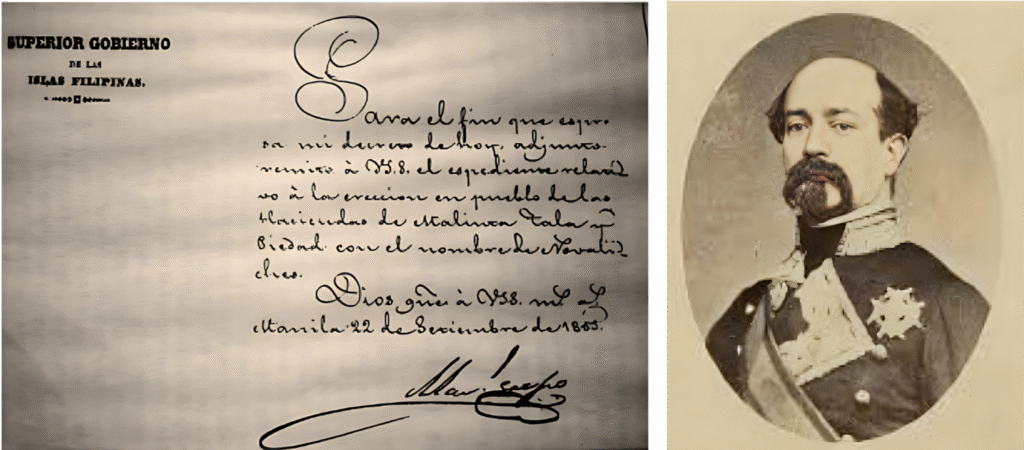 SUPERIOR GOBIERNO
DE LAS
ISLAS FILIPINAS.
Para el fin que espre-
sa mi decreto de hoy, adjunto
remito à V.S. el espediente relati-
vo à la ereccion en pueblo de las
Haciendas de Malinta Tala y
Piedad con el nombre de Novali-
ches.
Dios gũe à V.S. ms. as.
Manila 22 de Setiembre de 1855.
Man.l Crespo